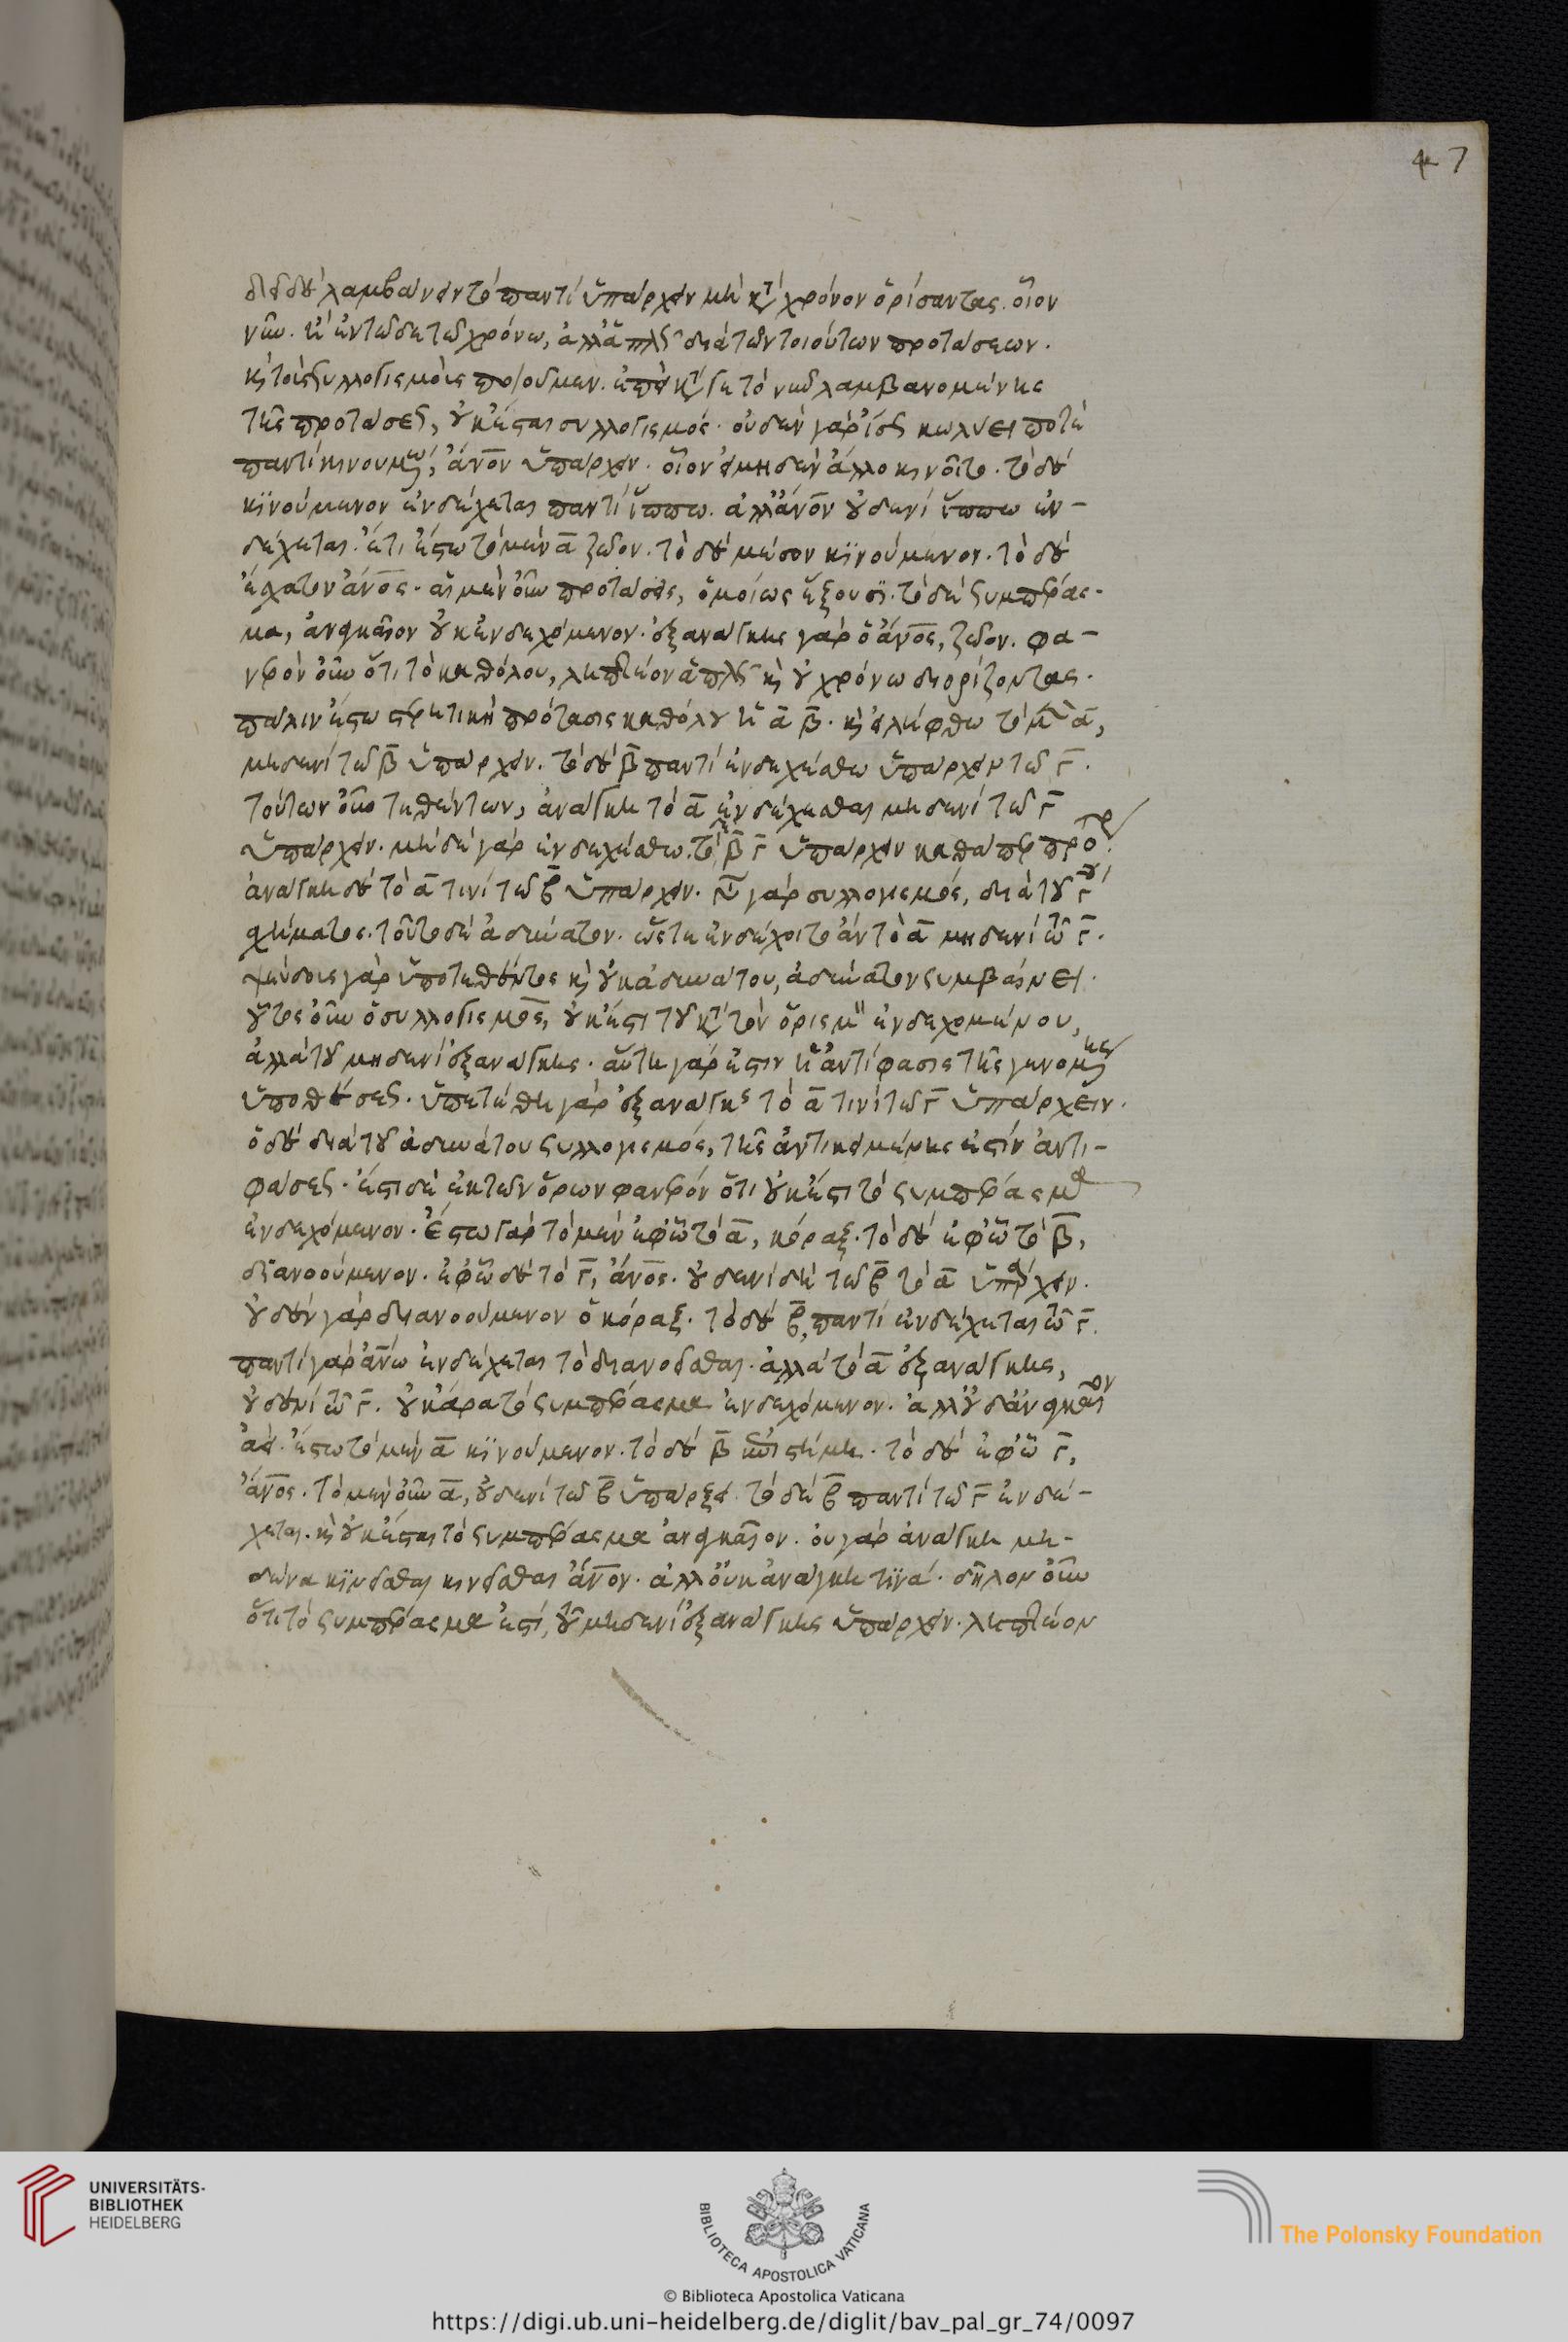 47
δεῖ δὲ λαμβάνειν τὸ παντὶ ὑπάρχειν μὴ κτ χρόνον ὁρίσαντας. οἷον
νῦν. ἢ ἐν τῶδε τῶ χρόνω, ἀλλ' ἁπλς διὰ τῶν τοιούτων προτάσεων.
κ τοὺς συλλογισμοὺς ποιοῦμεν. ἐπεὶ κτ γε τὸ νῦν λαμβανομένης
τῆς προτάσεως, οὐκ ἔσται συλλογισμός. οὐδὲν γὰρ ἴσως κωλύει ποτὲ
παντὶ κινουμένω, ἄνον ὑπάρχειν. οἷον εἰ μηδὲν ἄλλο κινοῖτο. τὸ δὲ
κινούμενον ἐνδέχεται παντὶ ἵππω. ἀλλ' ἄνον οὐδενὶ ἵππω ἐν-
δέχεται. ἔτι ἔστω τὸ μὲν α ζῶον. τὸ δὲ μέσον κινούμενον. τὸ δὲ
ἔσχατον ἄνος. αἱ μὲν οὖν προτάσεις, ὁμοίως ἕξουσι. τὸ δὲ συμπέρας-
μα, ἀναγκαῖον οὐκ ἐνδεχόμενον. ἐξ ἀνάγκης γὰρ ὁ ἄνος, ζῶον. φα-
νερὸν οὖν ὅτι τὸ καθόλου, ληπτέον ἁπλς κ οὐ χρόνω διορίζοντας.
πάλιν ἔστω στερητικὴ πρότασις καθόλου ἡ α β. κ εἰλήφθω τὸ μὲν α,
μηδενὶ τῶ β ὑπάρχειν. τὸ δὲ β παντὶ ἐνδεχέσθω ὑπάρχειν τῶ γ.
τούτων οὖν τεθέντων, ἀνάγκη τὸ α ἐνδέχεσθαι μηδενὶ τῶ γ
ὑπάρχειν. μὴ δὲ γὰρ ἐνδεχέσθω. τὸ β γ ὑπάρχειν καθάπερ πρότρ.
ἀνάγκη δὲ τὸ α τινὶ τῶ β ὑπάρχειν. γν γὰρ συλλογισμός, διὰ τοῦ γου
σχήματος. τοῦτο δὲ ἀδύνατον. ὥστε ἐνδέχοιτο ἂν τὸ α μηδενὶ τῶ γ.
ψεύδους γὰρ ὑποτεθέντος κ οὐκ ἀδυνάτου, ἀδύνατον συμβαίνει.
οὗτος οὖν ὁ συλλογισμός, οὐκ ἔστι τοῦ κτ τὸν ὁρισμ ἐνδεχομένου,
ἀλλὰ τοῦ μηδενὶ ἐξ ἀνάγκης. αὕτη γάρ ἐστιν ἡ ἀντίφασις τῆς γενομένης
ὑποθέσεως. ὑπετέθη γὰρ ἐξ ἀνάγκης τὸ α τινὶ τῶ γ ὑπάρχειν.
ὁ δὲ διὰ τοῦ ἀδυνάτου συλλογισμός, τῆς ἀντικειμένης ἐστὶν ἀντι-
φάσεως. ἔτι δὲ ἐκ τῶν ὅρων φανερὸν ὅτι οὐκ ἔστι τὸ συμπέρασμα
ἐνδεχόμενον. ἔστω γὰρ τὸ μὲν ἐφ' ὧ τὸ α, κόραξ. τὸ δὲ ἐφ' ὧ τὸ β,
διανοούμενον. ἐφ' ὧ δὲ τὸ γ, ἄνος. οὐδενὶ δὲ τῶ β τὸ α ὑπάρχειν.
οὐδὲν γὰρ διανοούμενον ὁ κόραξ. τὸ δὲ β, παντὶ ἐνδέχεται τῶ γ.
παντὶ γὰρ ἀνω ἐνδέχεται τὸ διανοεῖσθαι. ἀλλὰ τὸ α ἐξ ἀνάγκης,
οὐδενὶ τῶ γ. οὐκ ἄρα τὸ συμπέρασμα ἐνδεχόμενον. ἀλλ' οὐδ' ἀναγκαῖον
ἀεί. ἔστω τὸ μὲν α κινούμενον. τὸ δὲ β ἐπιστήμη. τὸ δὲ ἐφ' ὧ γ,
ἄνος. τὸ μὲν οὖν α, οὐδενὶ τῶ β ὑπάρξει. τὸ δὲ β παντὶ τῶ γ ἐνδέ-
χεται. κ οὐκ ἔσται τὸ συμπέρασμα ἀναγκαῖον. οὐ γὰρ ἀνάγκη μη-
δένα κινεῖσθαι κινεῖσθαι ἄνον. ἀλλ' οὐκ ἀνάγκη τινά. δῆλον οὖν
ὅτι τὸ συμπέρασμα ἐστί, τοῦ μηδενὶ ἐξ ἀνάγκης ὑπάρχειν. ληπτέον
UNIVERSITÄTS-
BIBLIOTHEK
HEIDELBERG
BIBLIOTECA APOSTOLICA VATICANA
The Polonsky Foundation
© Biblioteca Apostolica Vaticana
https://digi.ub.uni-heidelberg.de/diglit/bav_pal_gr_74/0097